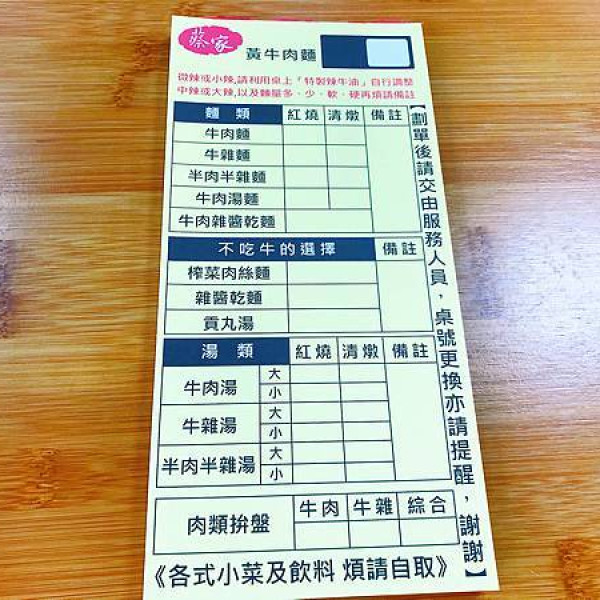 蔡家
黃牛肉麵
微辣或小辣,請利用桌上「特製辣牛油」自行調整
中辣或大辣,以及麵量多、少、軟、硬再煩請備註
麵 類 紅燒 清燉 備註
牛肉麵
牛雜麵
半肉半雜麵
牛肉湯麵
牛肉雜醬乾麵
不吃牛的選擇 備註
榨菜肉絲麵
雜醬乾麵
貢丸湯
湯 類 紅燒 清燉 備註
牛肉湯 大
小
牛雜湯 大
小
半肉半雜湯 大
小
肉類拚盤 牛肉 牛雜 綜合
《各式小菜及飲料 煩請自取》
【劃單後請交由服務人員，桌號更換亦請提醒，謝謝】